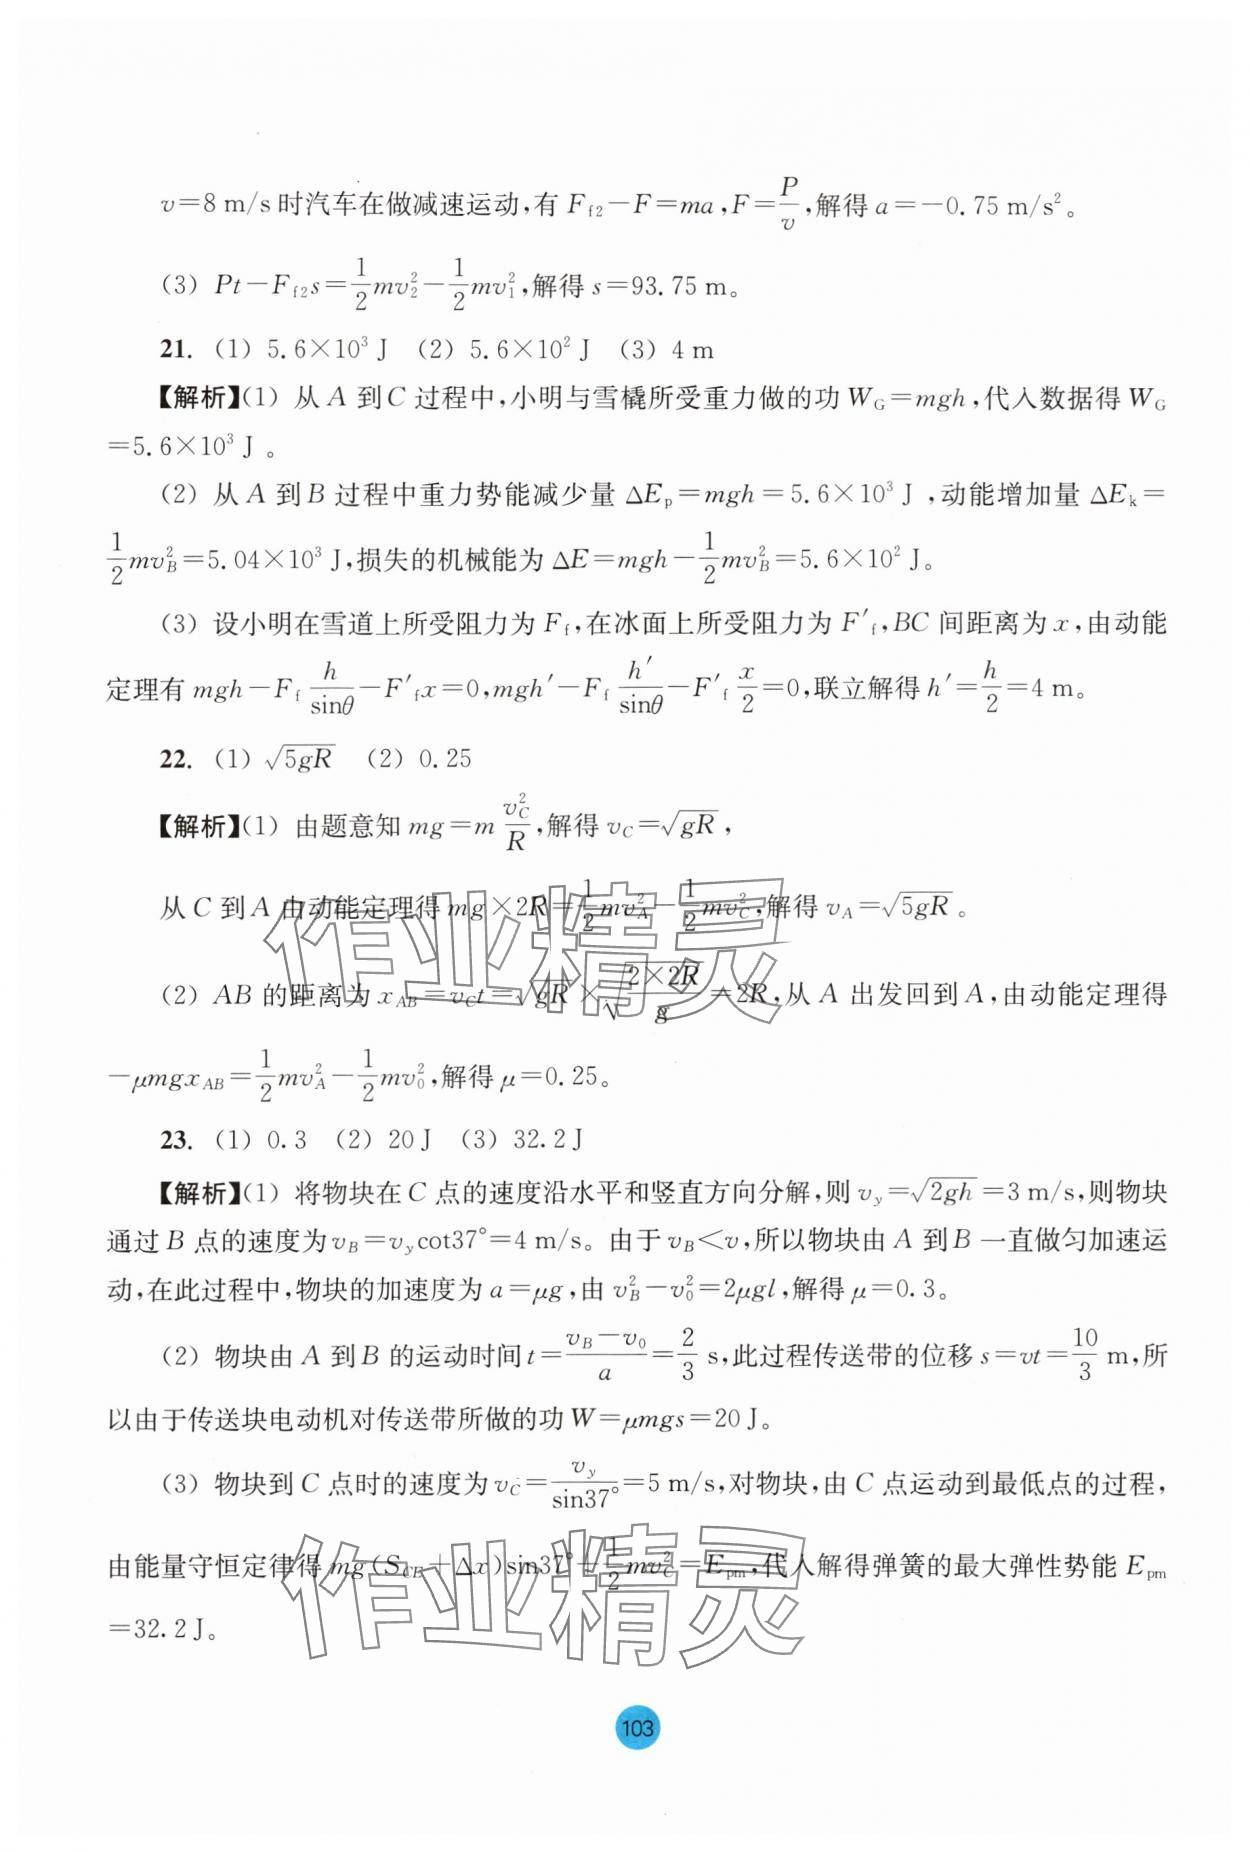 v=8 m/s时汽车在做减速运动,有 F_f2－F=ma,F=P/v,解得 a=－0.75 m/s²。
(3) Pt－F_f2 s=1/2 mv₂²－1/2 mv₁²,解得 s=93.75 m。
21. (1) 5.6×10³ J (2) 5.6×10² J (3) 4 m
【解析】(1) 从 A 到 C 过程中,小明与雪橇所受重力做的功 W_G=mgh,代入数据得 W_G
=5.6×10³ J 。
(2) 从 A 到 B 过程中重力势能减少量 ΔE_p=mgh=5.6×10³ J ,动能增加量 ΔE_k=
1/2 mv_B²=5.04×10³ J,损失的机械能为 ΔE=mgh－1/2 mv_B²=5.6×10² J。
(3) 设小明在雪道上所受阻力为 F_f,在冰面上所受阻力为 F′_f,BC 间距离为 x,由动能
定理有 mgh－F_f h/sinθ－F′_f x=0,mgh′－F_f h′/sinθ－F′_f x/2=0,联立解得 h′=h/2=4 m。
22. (1) √5gR (2) 0.25
【解析】(1) 由题意知 mg=m v_C²/R,解得 v_C=√gR,
从 C 到 A 由动能定理得 mg×2R=1/2 mv_A²－1/2 mv_C²,解得 v_A=√5gR。
(2) AB 的距离为 x_AB=v_C t=√gR×√(2×2R/g)=2R,从 A 出发回到 A,由动能定理得
－μmgx_AB=1/2 mv_A²－1/2 mv₀²,解得 μ=0.25。
23. (1) 0.3 (2) 20 J (3) 32.2 J
【解析】(1) 将物块在 C 点的速度沿水平和竖直方向分解,则 v_y=√2gh=3 m/s,则物块
通过 B 点的速度为 v_B=v_y cot37°=4 m/s。由于 v_B<v,所以物块由 A 到 B 一直做匀加速运
动,在此过程中,物块的加速度为 a=μg,由 v_B²－v₀²=2μgl,解得 μ=0.3。
(2) 物块由 A 到 B 的运动时间 t=(v_B－v₀)/a=2/3 s,此过程传送带的位移 s=vt=10/3 m,所
以由于传送块电动机对传送带所做的功 W=μmgs=20 J。
(3) 物块到 C 点时的速度为 v_C=v_y/sin37°=5 m/s,对物块,由 C 点运动到最低点的过程,
由能量守恒定律得 mg(S_CE+Δx)sin37°+1/2 mv_C²=E_pm,代入解得弹簧的最大弹性势能 E_pm
=32.2 J。
作业精灵
作业精灵
103